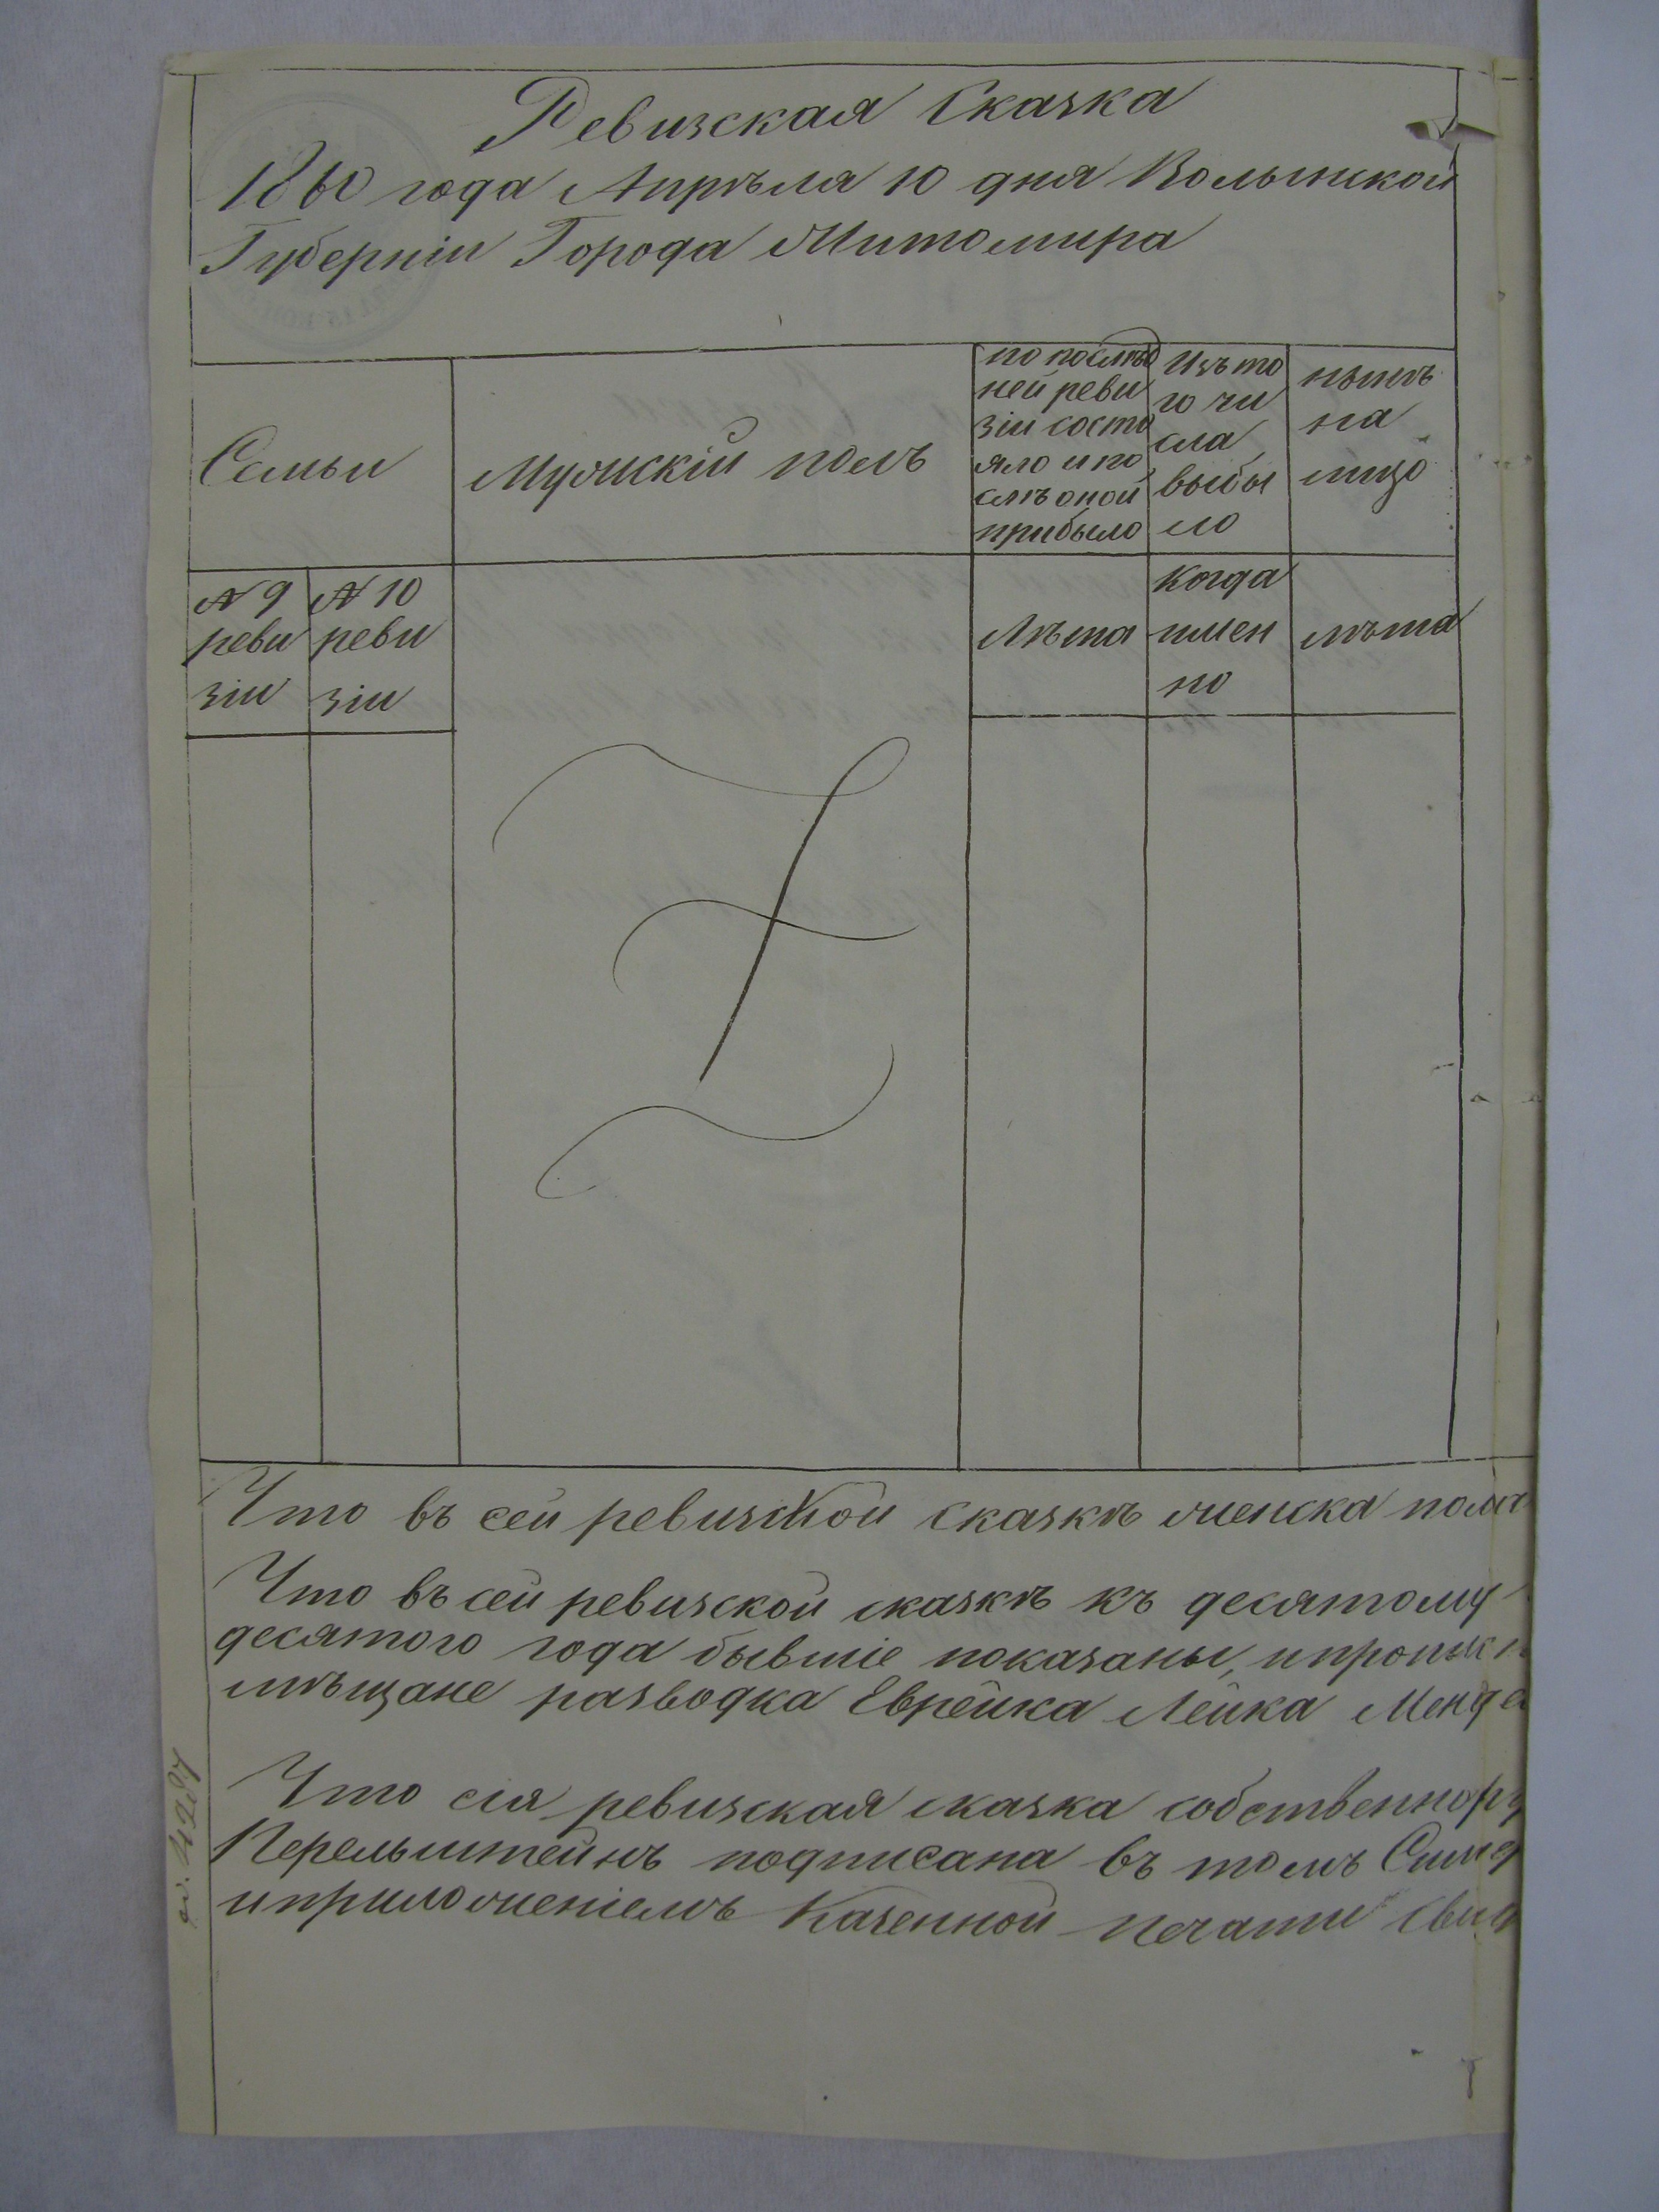 Ревизская Сказка
1860 года Апрѣля 10 дня Волынской
Губерніи Города Житомира
Семьи
Мужскій полъ
по послѣд
ней реви
зіи состо
яло и по
слѣ оной
прибыло
Изъ то
го чи
сла
выбы
ло
нынѣ
на
лицо
№ 9
реви
зіи
№ 10
реви
зіи
Лѣта
Когда
имен
но
лѣта
Что въ сей ревизской сказкѣ женска пола
Что въ сей ревизской сказкѣ къ десятому
десятого года бывшіе показаны, и
мѣщане разводка Еврейка Лейка
Что сія ревизская сказка
Перельштейнъ подписана въ томъ
и приложеніемъ Казенной печати